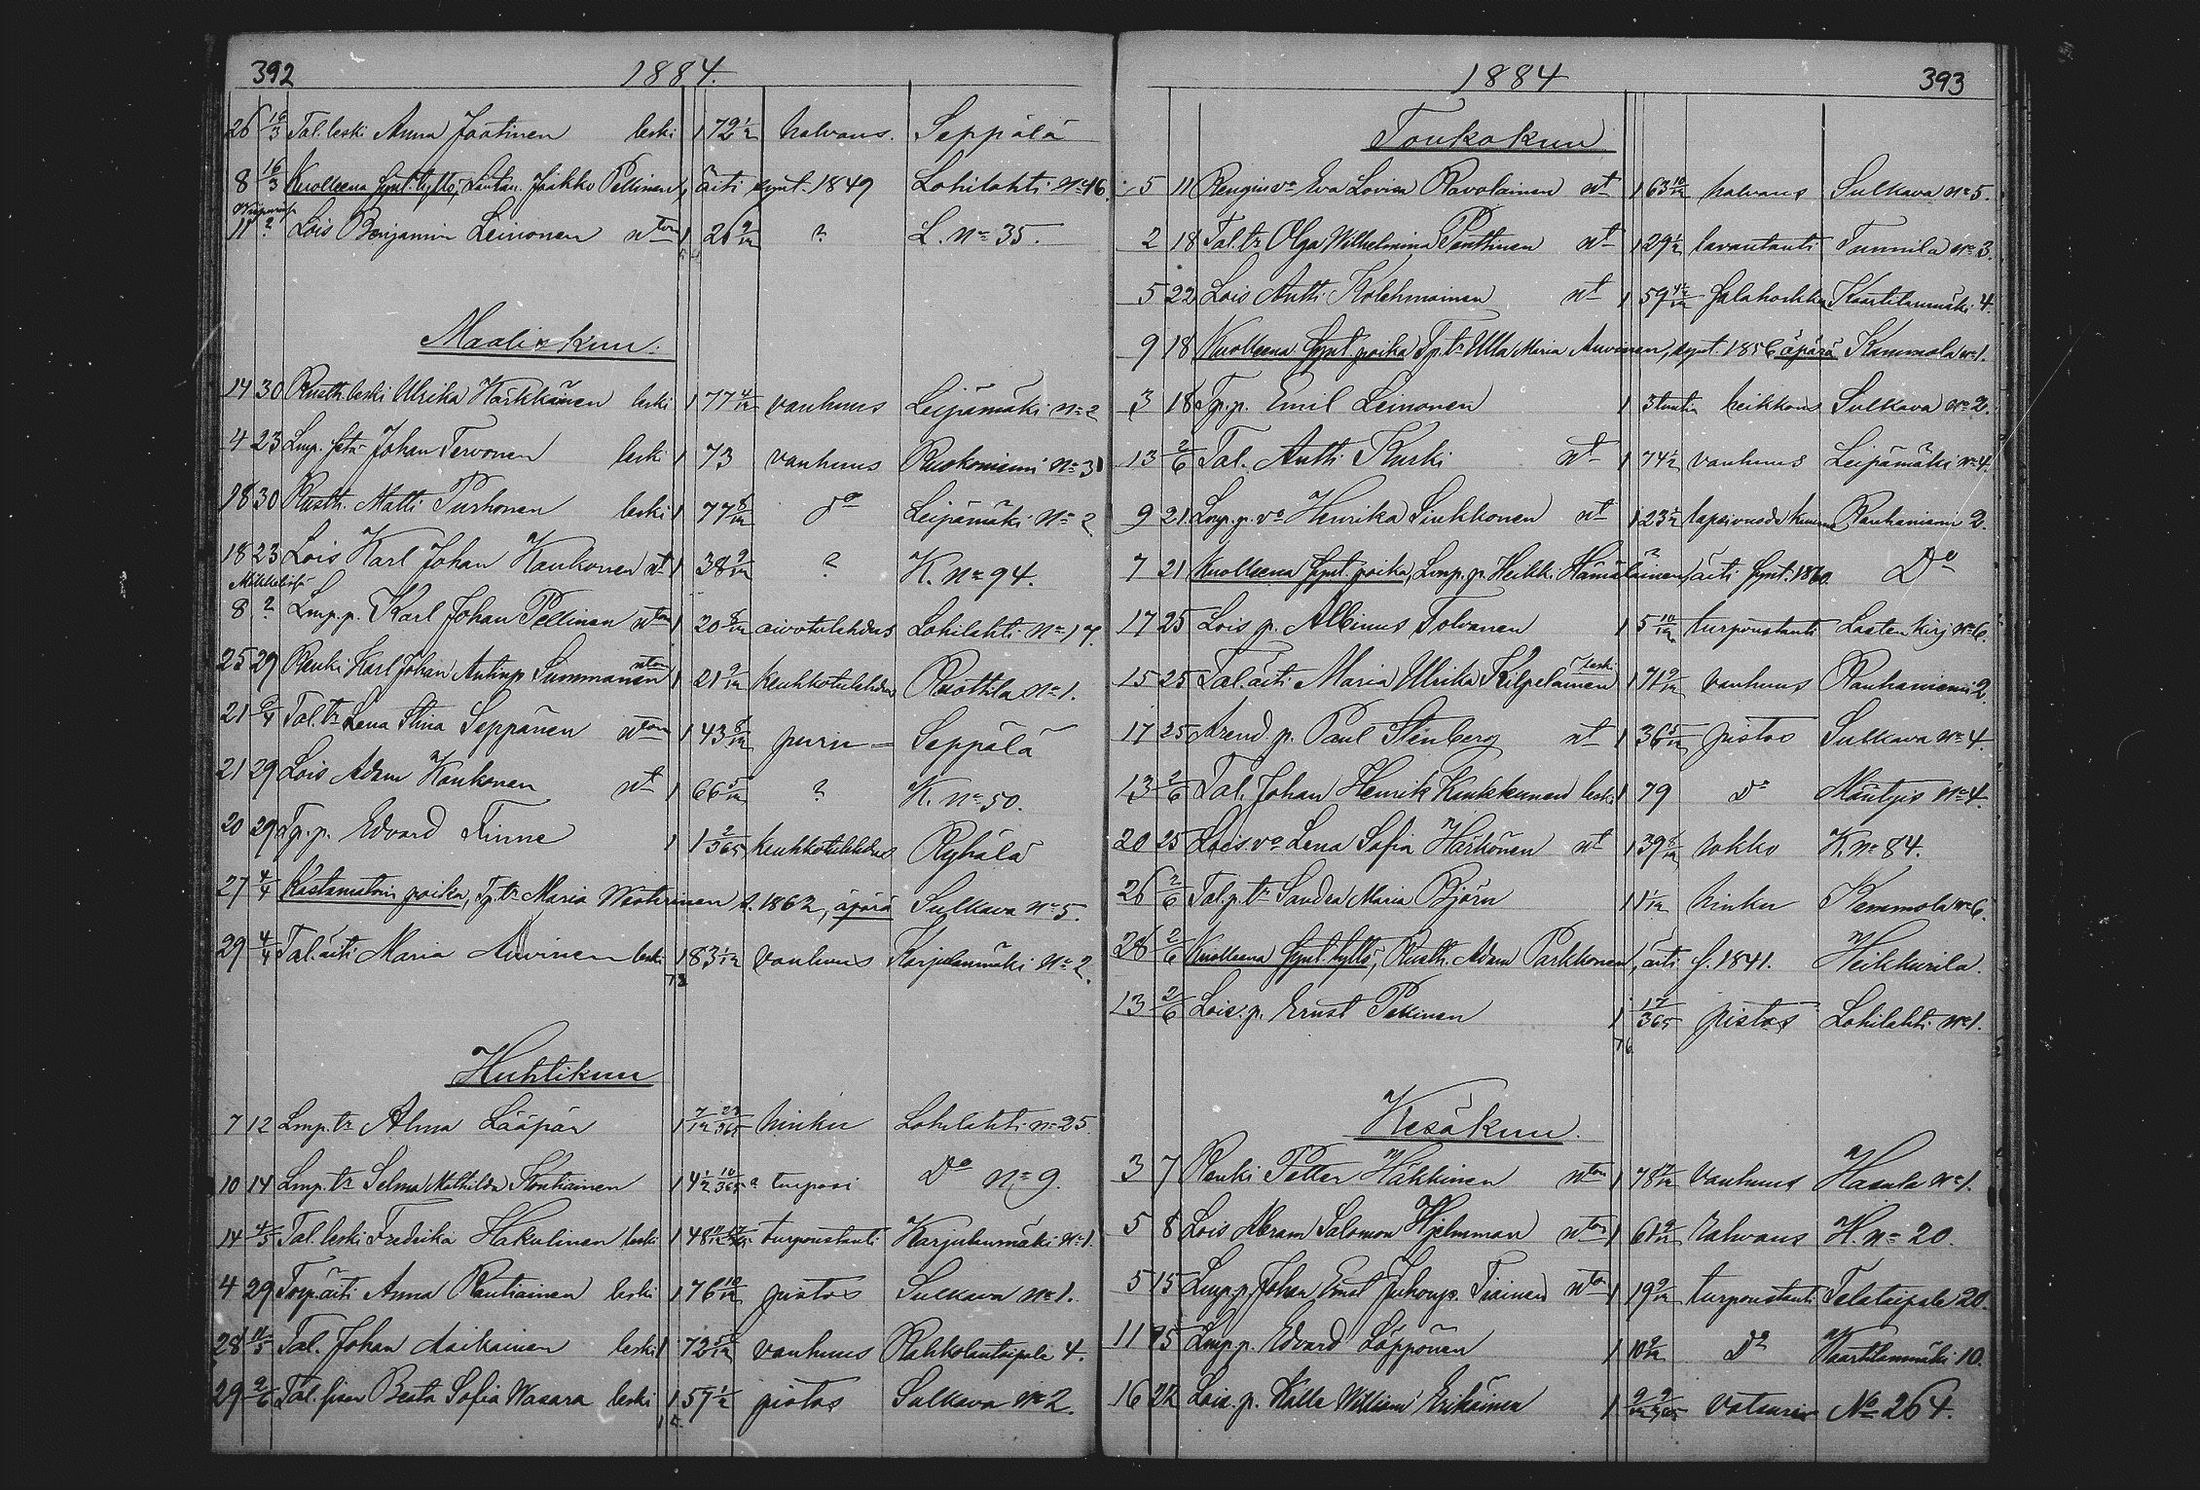 392 1884.
26 16/3 Tal. leski Anna Jaatinen leski 1 79 1/2 halvaus. Seppälä
8 16/3 Kuolleena synt. tyttö, Lautam. Jaakko Pellinen, äiti synt. 1849 Lohilahti No 16.
11 ? Lois Benjamin Leinonen nton 1 26 9/12 ? L. No 35.
Maaliskuu.
14 30 Rusth. leski Ulrika Härkkänen leski 1 77 4/12 vanhuus Leipämäki No 2
4 23 Lmp. Johan Tervonen leski 1 73 vanhuus Ruokoniemi No 3
18 30 Rusth. Matti Purhonen leski 1 77 8/12 do Leipämäki No 2
18 23 Lois Karl Johan Kaukonen nt 1 38 9/12 ? K. No 94.
Mikkelissä
8 ? Lmp. p. Karl Johan Pellinen nton 1 20 8/12 aivotulehdus Lohilahti No 17.
25 29 Renki Karl Johan Antinp. Summanen nton 1 21 9/12 keuhkotulehdus Ruottila No 1.
21 9/4 Tal. tr Lena Stina Seppänen nton 1 43 8/12 Seppälä
21 29 Lois Adam Kaukonen nt 1 66 5/12 ? K. No 50.
20 29 Tp. p. Edvard Finne 1 1 2/365 keuhkotulehdus Ryhälä
27 4/4 Kastamatoin poika, Tp. tr Maria Westerinen s. 1862, äpärä Sulkava No 5.
29 4/4 Tal. äiti Maria Auvinen leski 1 83 1/12 vanhuus Karjulanmäki No 2.
13
Huhtikuu
7 12 Lmp. tr Alma Lääpän 1 7/12 23/365 hinku Lohilahti No 25.
10 14 Lmp. tr Selma Mathilda Kontiainen 1 4 1/12 10/365 turpoosi Do No 9.
14 4/5 Tal. leski Fredrika Hakulinen leski 1 48 turpoustauti Karjulanmäki No 1.
4 29 Torp. äiti Anna Rautiainen leski 1 76 10/12 pistos Sulkava No 1.
28 11/5 Tal. Johan Asikainen leski 1 72 5/12 vanhuus Rahkolantaipale 4.
29 2/6 Tal. Beata Sofia Wasara leski 1 57 1/2 pistos Sulkava No 2.
1884 393
Toukokuu
5 11 Rengin vo Eva Lovisa Pavolainen nt 1 63 10/12 halvaus Sulkava No 5.
2 18 Tal. tr Olga Wilhelmina Penttinen nt 1 29 1/2 lavantauti Tunnila No 3.
5 22 Lois Antti Kolehmainen nt 1 59 Kaartilanmäki 4.
9 18 Kuolleena synt. poika Tp. tr Ulla Maria Auvinen, synt. 1856 äpärä Kammola No 1.
3 18 Tp. p. Emil Leinonen 1 3 tuntia heikkous Sulkava No 2.
13 2/6 Tal. Antti Kurki nt 1 74 1/2 vanhuus Leipämäki No 4.
9 21 Lmp. p. vo Henrika Sinkkonen nt 1 23 1/2 lapsivuode kuume Rauhaniemi 2.
7 21 Kuolleena synt. poika, Lmp. p. Heikki Hämäläinen, äiti synt. 1860. Do
17 25 Lois p. Albinus Tolvanen 1 5 10/12 turpoustauti Lasten kirj. No 6.
15 25 Tal. äiti Maria Ulrika Kilpeläinen leski 1 71 9/12 vanhuus Rauhaniemi 2.
17 25 Arend. p. Paul Stenberg nt 1 36 5/12 pistos Sulkava No 4.
13 2/6 Tal. Johan Henrik Kaukkunen leski 1 79 do Mäntyis No 4.
20 25 Lois. vo Lena Sofia Härkönen nt 1 39 6/12 rokko K. No 84.
26 2/6 Tal. p. tr Sandra Maria Björn 1 1 1/12 hinku Kammola No 6.
28 2/6 Kuolleena synt. tyttö, Rusth. Adam Parkkonen, äiti s. 1841. Heikkurila.
13 2/6 Lois. p. Ernst Pekinen 1 17/365 pistos Lohilahti No 1.
16
Kesäkuu.
3 7 Renki Petter Häkkinen nton 1 78 vanhuus Hasula No 1.
5 8 Lois Abram Salomon Hjelmman nton 1 61 9/12 halvaus H. No 20.
5 15 Lmp. p. Johan Ernst Juhonp. Tiainen nton 1 19 9/12 turpoustauti Telataipale 20.
11 15 Lmp. p. Edvard Läppönen 1 10 9/12 Do Kaartilanmäki 10.
16 22 Lois. p. Kalle William Erikäinen 1 9/12 9/365 vatsuri No 264.